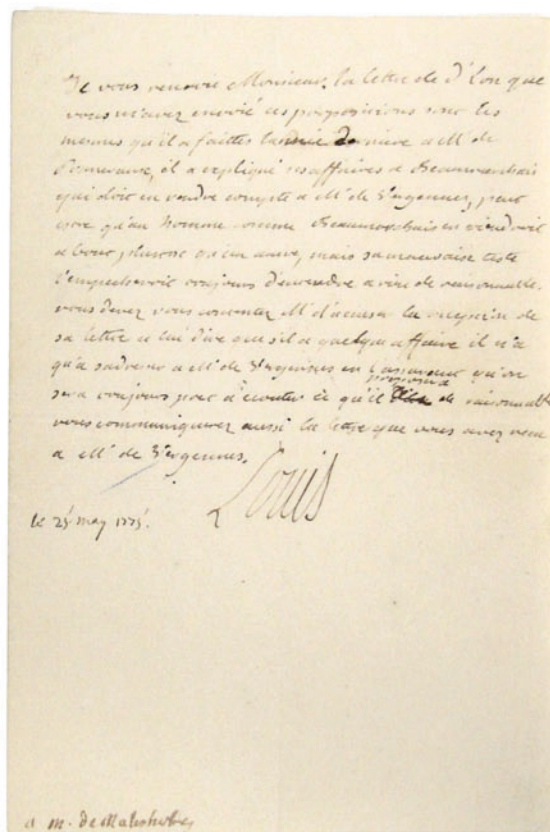 Je vous renvoie Monsieur, la lettre de d'Eon que
vous m'avez envoié ces proposicions sont les
mesmes qu'il a faittes l'année derniere a Mr de
il a expliqué ses affaires a Beaumarchais
qui doit en rendre compte a Mr de Vergennes, peut
estre qu'un homme comme Beaumarchais en viendroit
a bout plustost qu'un autre, mais sa mauvaise teste
l'empecheroit toujours d'entendre a rien de raisonnable.
vous devez vous contenter Mr d'accuser la reception de
sa lettre et lui dire que s'il a quelque affaire il n'a
qu'a sadresser a Mr de Vergennes en l'assurant qu'on
sera toujours prest a écouter ce qu'il proposera de raisonnable
vous communiquerez aussi la lettre que vous avez recue
a Mr de Vergennes.
Louis
le 25 may 1775.
a m. de Malesherbes